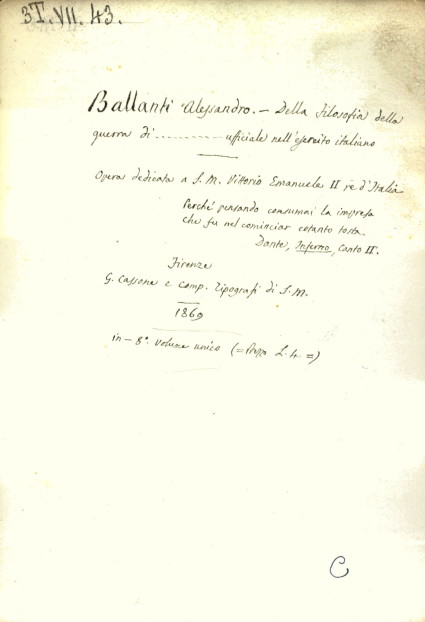 3T.VII.43.
Ballanti Alessandro. — Della Filosofia della
guerra di ........... ufficiale nell'esercito italiano
Opera dedicata a S. M. Vittorio Emanuele II re d'Italia
Perché pensando consumai la impresa
Che fu nel cominciar cotanto tosta.
Dante, Inferno, Canto II.
Firenze
G. Cassone e Comp. Tipografi di S. M.
1869
in – 8°. volume unico (= Prezzo L. 4. =)
C